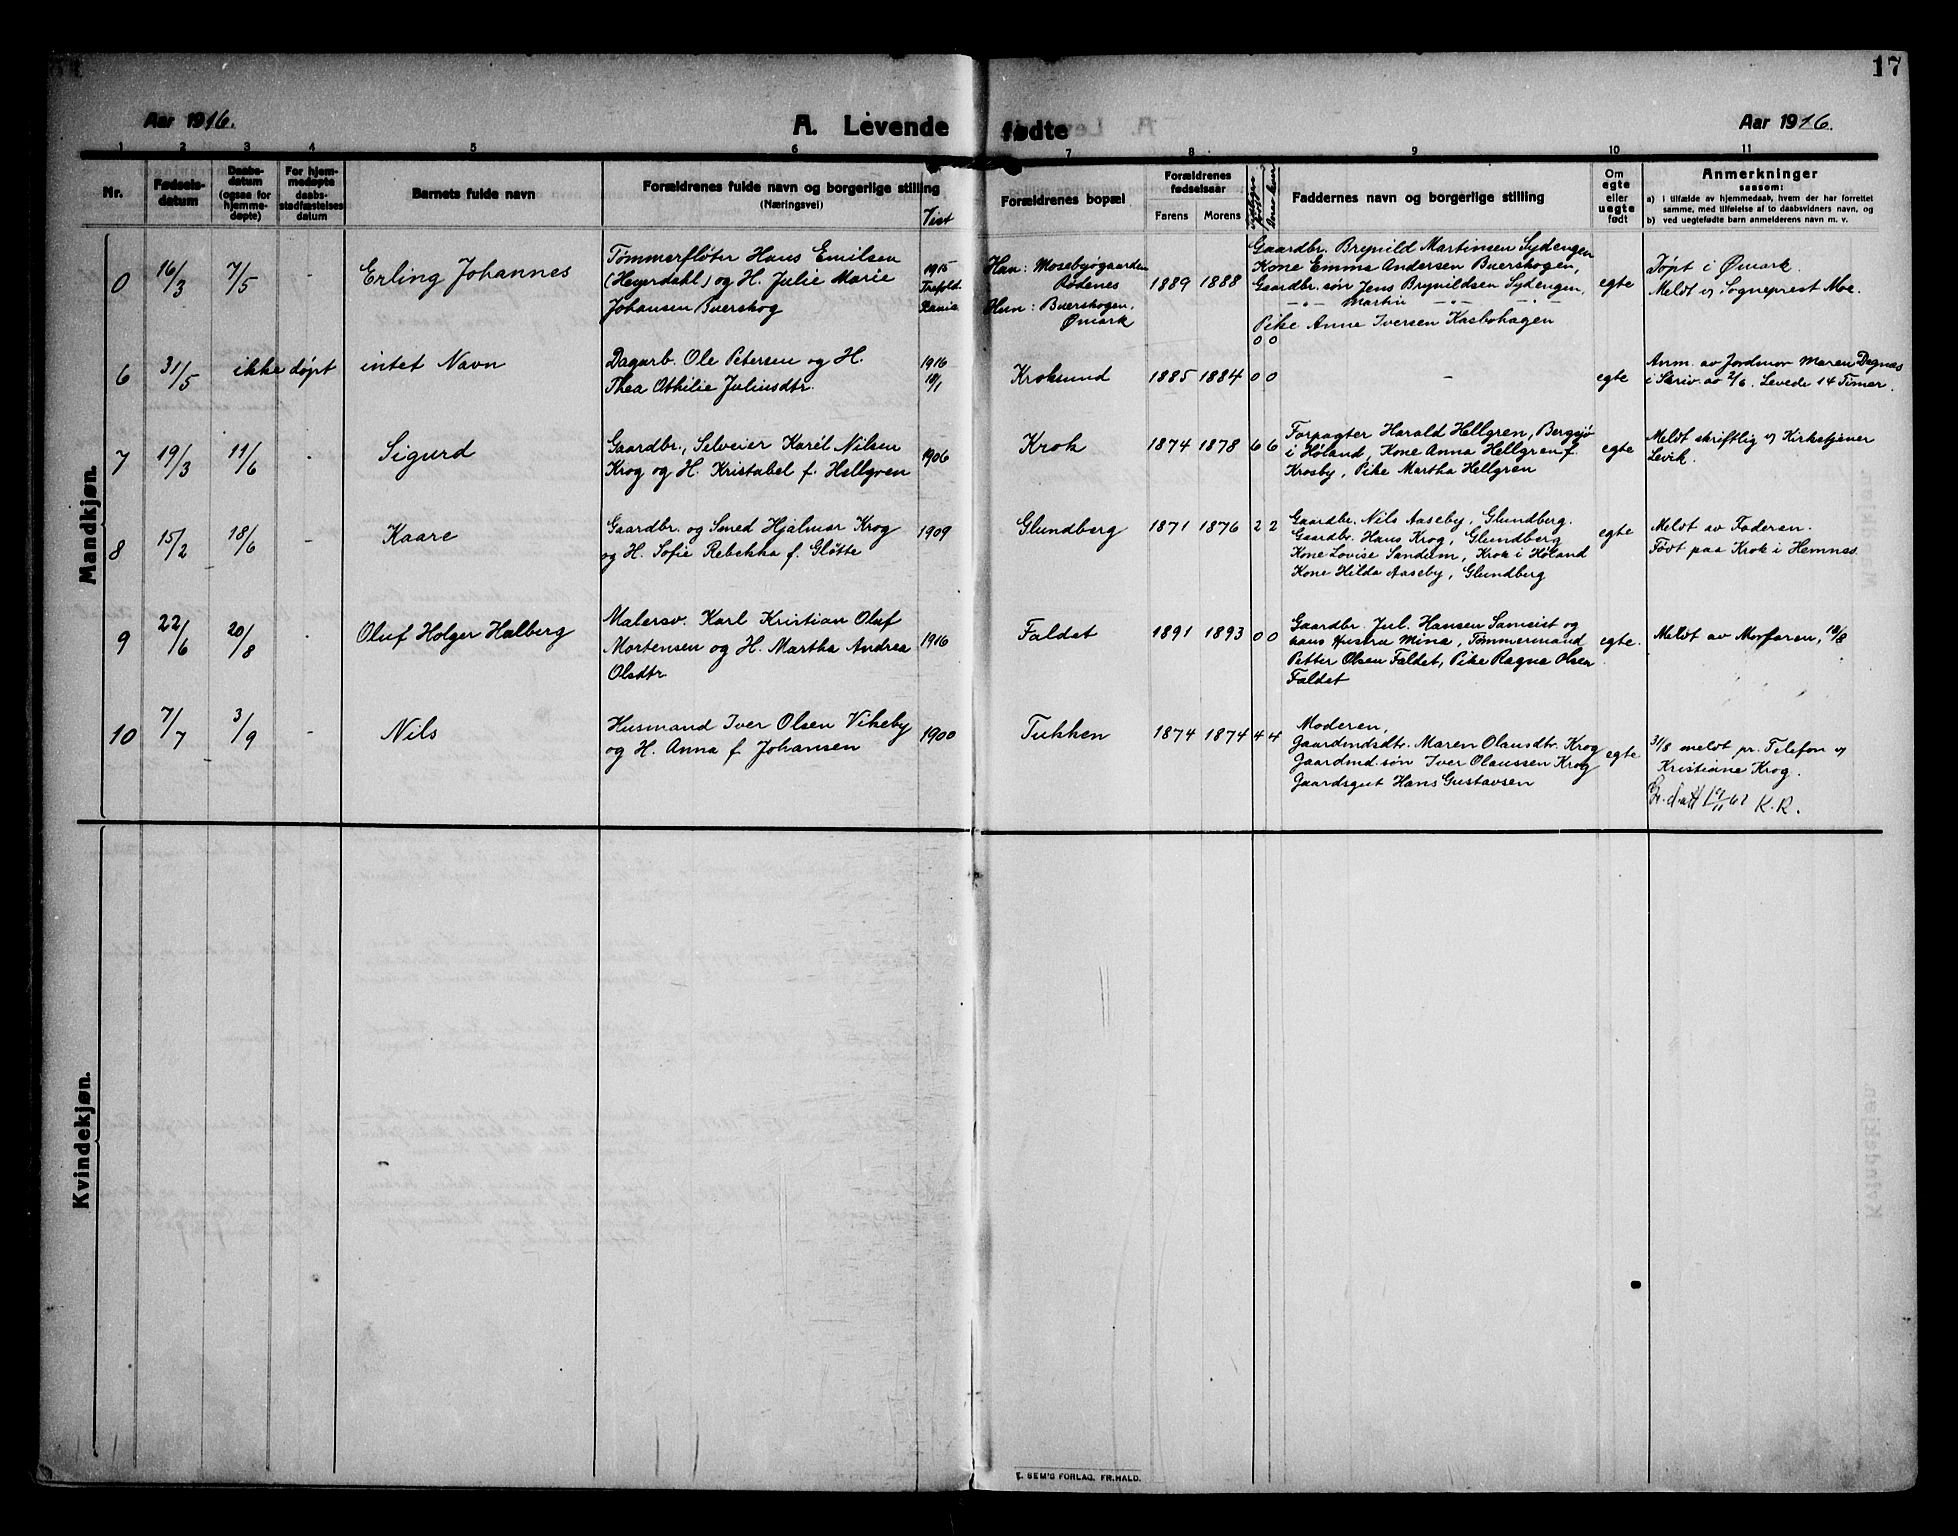 17
Aar 1916.
A. Levende fødte
Aar 1916.
1 2 3 4 5 6 7 8 9 10 11
Nr.
Fødsels-
datum
Daabs-
datum
(ogsaa for
hjemme-
døpte)
For hjem-
medøpte
daabs-
stadfæstelses
datum
Barnets fulde navn
Forældrenes fulde navn og borgerlige stilling
(Næringsvei)
Viet
Forældrenes bopæl
Forældrenes
fødselsaar
Farens Morens
Faddernes navn og borgerlige stilling
Om
egte
eller
uegte
født
Anmerkninger
saasom:
a) i tilfælde av hjemmedaab, hvem der har forrettet
samme, med tilføielse af to daabsvidners navn, og
b) ved uegtefødte barn anmelderens navn m. v.
Mandkjøn.
0 16/3 7/5 - Erling Johannes
Tømmerfløter Hans Emilsen
(Heyerdahl) og H. Julie Marie
Johansen Buerskog
1915
Han: Mosebyøgaarden
Rødenes
Hun: Buerskogen,
Ømark
1889 1888
0 0
Gaardbr. Brynild Martinsen Sydengen
Kone Emma Andersen Buerskogen,
Gaardbr. søn Jens Brynildsen Sydengen,
-"- Martin -"- -"-
Pike Anna Iversen Kasbohagen
egte
Døpt i Ømark.
Meldt v Sogneprest Moe.
6 31/5 ikke døpt intet Navn
Dagarb. Ole Petersen og H.
Thea Othilie Juliusdtr.
1916
Kroksund
1885 1884 0 0 - egte
Anm. av Jordmor Maren Dagnæs
i Skriv. av 2/6. Levede 14 Timer.
7 19/3 11/6 - Sigurd
Gaardbr., Selveier Karèl Nilsen
Krog og H. Kristabel f. Hellgren
1906
Krok
1874 1878 6 6
Forpagter Harald Hellgren, Bergsjø
i Høland, Kone Anna Hellgren f.
Krosby, Pike Martha Hellgren
egte
Meldt skriftlig v Kirketjener
Levik.
8 15/2 18/6 - Kaare
Gaardbr. og Smed Hjalmar Krog
og H. Sofie Rebekka f. Gløtte
1909
Glundberg
1871 1876 2 2
Gaardbr. Nils Aaseby, Glundberg.
Gaardbr. Hans Krog, Glundberg
Kone Lovise Sandem, Krok i Høland
Kone Hilda Aaseby, Glundberg
egte
Meldt av Faderen.
Født paa Krok i Hemnes.
9 22/6 20/8 - Oluf Holger Halberg
Malersv. Karl Kristian Oluf
Mortensen og H. Martha Andrea
Olsdtr
1916
Faldet
1891 1893 0 0
Gaardbr. Jul. Hansen Samsist og
hans Hustru Mina, Tømmermand
Petter Olsen Faldet, Pike Ragna Olsen
Faldet
egte.
Meldt av Morfaren, 18/8
10 7/7 3/9 - Nils
Husmand Iver Olsen Vikeby
og H. Anna f. Johansen
1900
Tukken
1874 1874 4 4
Moderen,
Gaardmdsdtr. Maren Olausdtr. Krog
Gaardmd.søn Iver Olaussen Krog
Gaardsgut Hans Gustavsen
egte
31/8 meldt pr. Telefon v
Kristiane Krog.
K.R.
Kvindekjøn.
E. SEM'S FORLAG, FR.HALD.